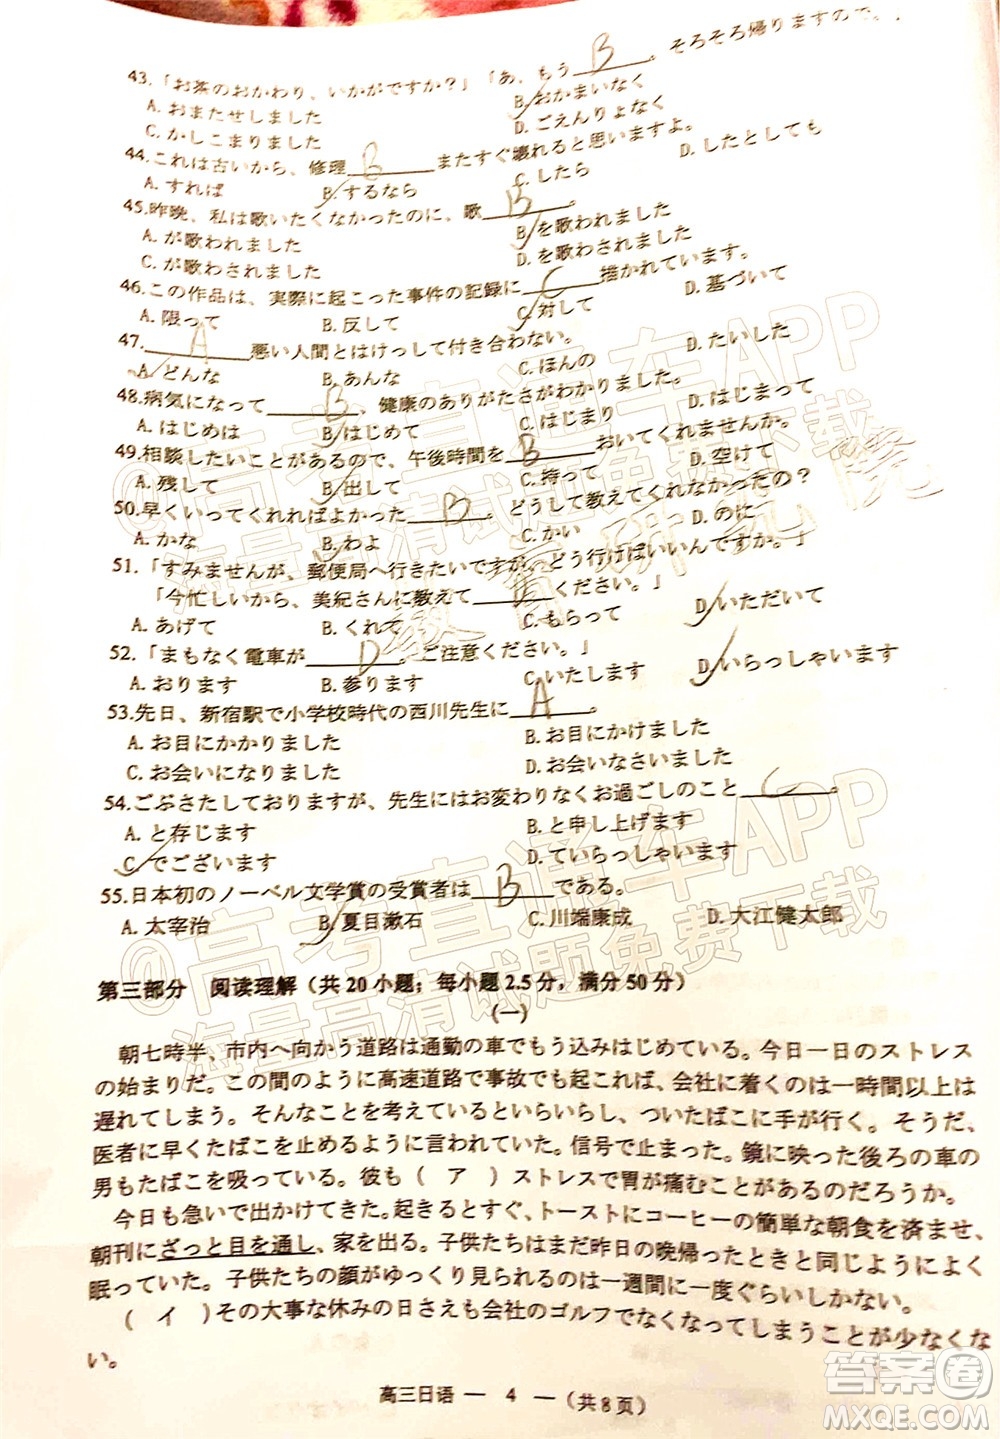 43.「お茶のおかわり、いかがですか？」「あ、もう B 。そろそろ帰りますので。」
A. おまたせしました B. おかまいなく
C. かしこまりました D. ごえんりょなく
44.これは古いから、修理 B またすぐ壊れると思いますよ。
A. すれば B. するなら C. したら D. したとしても
45.昨晩、私は歌いたくなかったのに、歌 B 。
A. が歌われました B. を歌われました
C. が歌わされました D. を歌わされました
46.この作品は、実際に起こった事件の記録に C 描かれています。
A. 限って B. 反して C. 対して D. 基づいて
47. A 悪い人間とはけっして付き合わない。
A. どんな B. あんな C. ほんの D. たいした
48.病気になって B 、健康のありがたさがわかりました。
A. はじめは B. はじめて C. はじまり D. はじまって
49.相談したいことがあるので、午後時間を B おいてくれませんか。
A. 残して B. 出して C. 持って D. 空けて
50.早くいってくれればよかった B 。どうして教えてくれなかったの？
A. かな B. わよ C. かい D. のに
51.「すみませんが、郵便局へ行きたいですが、どう行けばいいんですか。」
「今忙しいから、美紀さんに教えて D ください。」
A. あげて B. くれて C. もらって D. いただいて
52.「まもなく電車が D 。ご注意ください。」
A. おります B. 参ります C. いたします D. いらっしゃいます
53.先日、新宿駅で小学校時代の西川先生に A 。
A. お目にかかりました B. お目にかけました
C. お会いになりました D. お会いなさいました
54.ごぶさたしておりますが、先生にはお変わりなくお過ごしのこと C 。
A. と存じます B. と申し上げます
C. でございます D. ていらっしゃいます
55.日本初のノーベル文学賞の受賞者は B である。
A. 太宰治 B. 夏目漱石 C. 川端康成 D. 大江健太郎
第三部分 阅读理解（共20小题；每小题2.5分，满分50分）
(一)
朝七時半、市内へ向かう道路は通勤の車でもう込みはじめている。今日一日のストレス
の始まりだ。この間のように高速道路で事故でも起これば、会社に着くのは一時間以上は
遅れてしまう。そんなことを考えているといらいらし、ついたばこに手が行く。そうだ、
医者に早くたばこを止めるように言われていた。信号で止まった。鏡に映った後ろの車の
男もたばこを吸っている。彼も（ ア ）ストレスで胃が痛むことがあるのだろうか。
今日も急いで出かけてきた。起きるとすぐ、トーストにコーヒーの簡単な朝食を済ませ、
朝刊にざっと目を通し、家を出る。子供たちはまだ昨日の晩帰ったときと同じようによく
眠っていた。子供たちの顔がゆっくり見られるのは一週間に一度ぐらいしかない。
（ イ ）その大事な休みの日さえも会社のゴルフでなくなってしまうことが少なくな
い。
高三日语 — 4 — （共8页）
@高考直通车APP
海量高清试题免费下载
教育研究院
@高考直通车APP
海量高清试题免费下载
答案圈
MXQE.COM